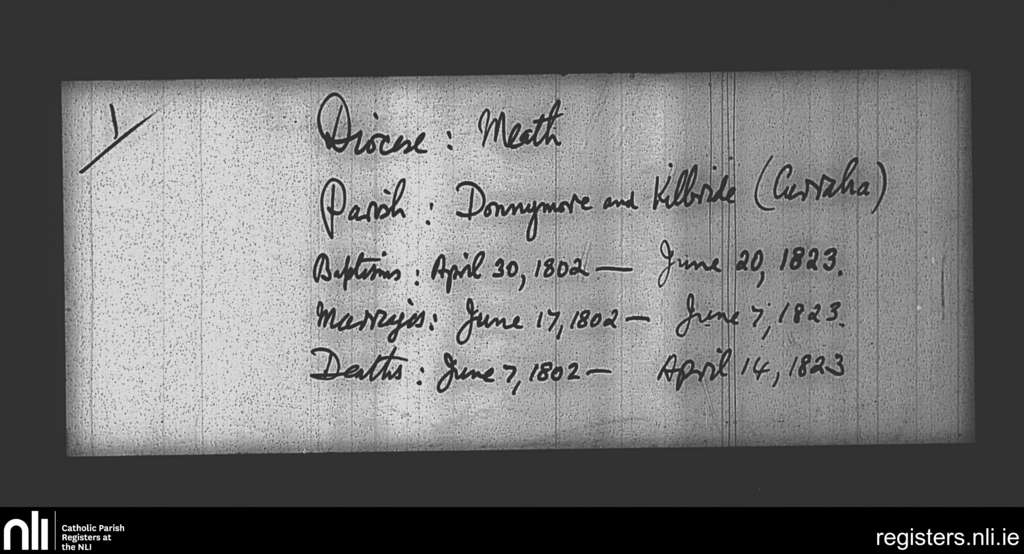 1
Diocese : Meath
Parish : Donnymore and Kilbride (Curraha)
Baptisms : April 30, 1802 — June 20, 1823.
Marriages : June 17, 1802 — June 7, 1823.
Deaths : June 7, 1802 — April 14, 1823
nli
Catholic Parish
Registers at
the NLI
registers.nli.ie